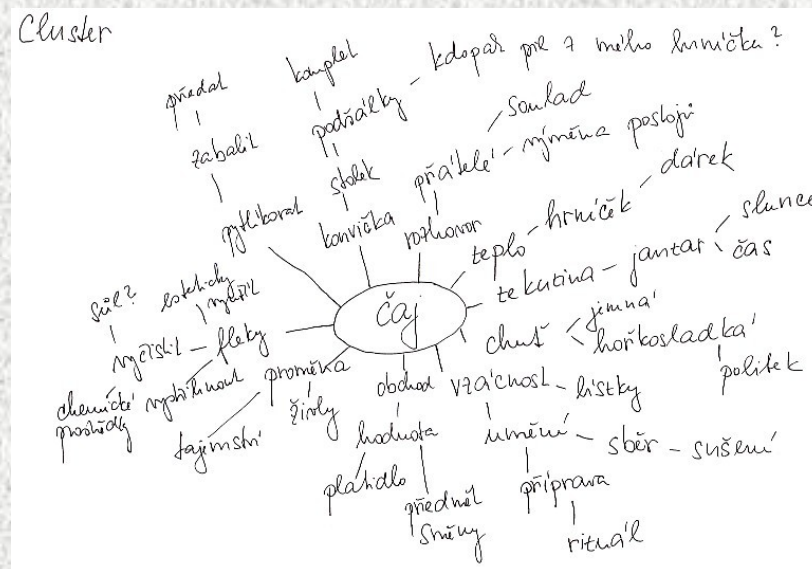 Cluster
předat
zabalit
pytlíkovat
komplet
podšálky – kdopak pil z mého hrníčka?
stolek
konvička
soulad
přátelé – výměna postojů
rozhovor
teplo – hrníček – dárek
tekutina – jantar
slunce
čas
čaj
chuť
jemná
hořkosladká
polibek
vzácnost – lístky
umění – sběr – sušení
příprava
rituál
obchod
hodnota
platidlo
předmět
směny
proměna
živly
tajemství
fleky
esteticky
vyčistil
sůl?
chemické
prostředky
vystřihnout